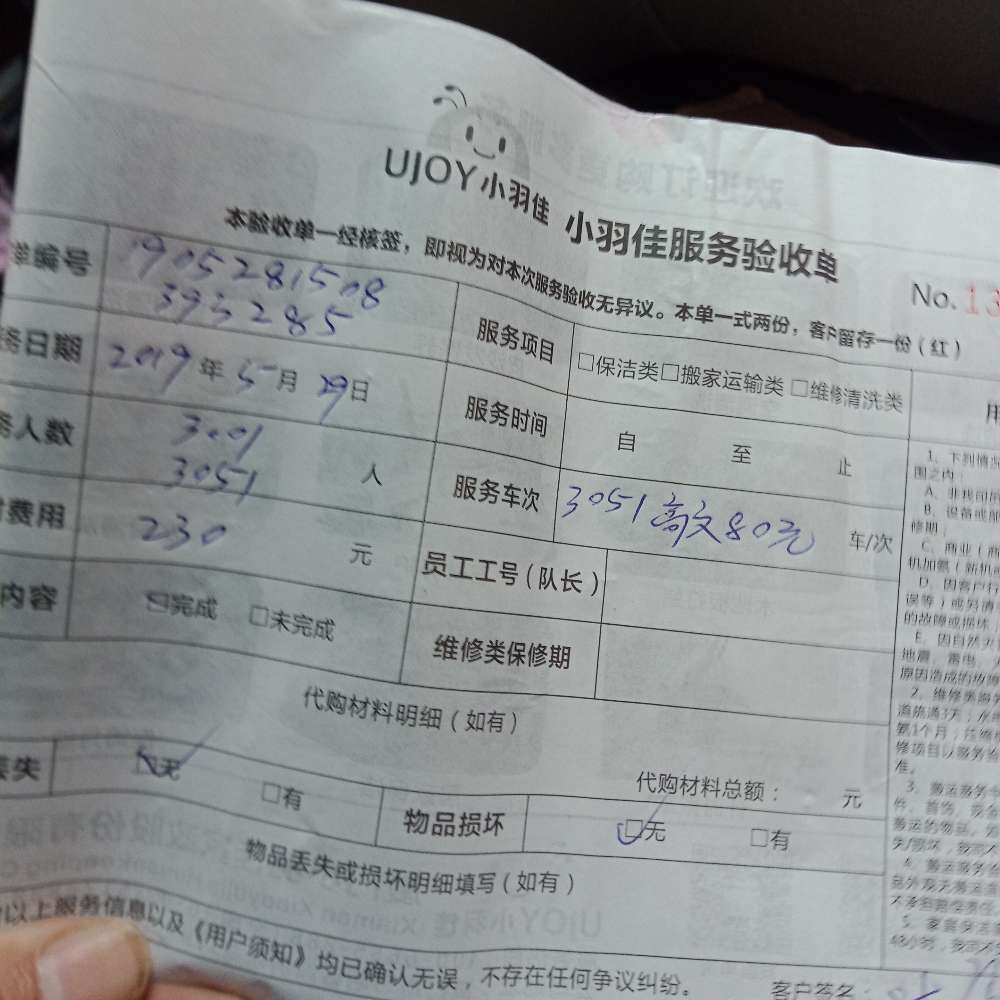 UJOY小羽佳 小羽佳服务验收单
本验收单一经核签，即视为对本次服务验收无异议。本单一式两份，客户留存一份（红）
No.13
单编号 1905281508
3932285
服务项目 □保洁类□搬家运输类 □维修清洗类
务日期 2019年5月29日
服务时间 自 至 止
务人数 3001
3051 人
服务车次 3051 高文80元 车/次
费用 230 元
员工工号（队长）
内容 □完成 □未完成
维修类保修期
代购材料明细（如有）
代购材料总额： 元
丢失 □无 □有
物品损坏 □无 □有
物品丢失或损坏明细填写（如有）
以上服务信息以及《用户须知》均已确认无误，不存在任何争议纠纷。
客户签名：
用
1、下列情
围之内：
A、非我司
B、设备或
修期；
C、商业（商
机加氨（新机
D、因客户行
误等）或另请
的故障或损坏
E、因自然灾
地震、雷电、
原因造成的故障
2、维修类服务
氨1个月；
修项目以服务
准。
3、搬运服务
件、首饰、现金
搬运的物品，
失/损坏，我司不
4、搬运服务
品外观无
不承担赔偿责任
5、家庭保洁
48小时，我司不